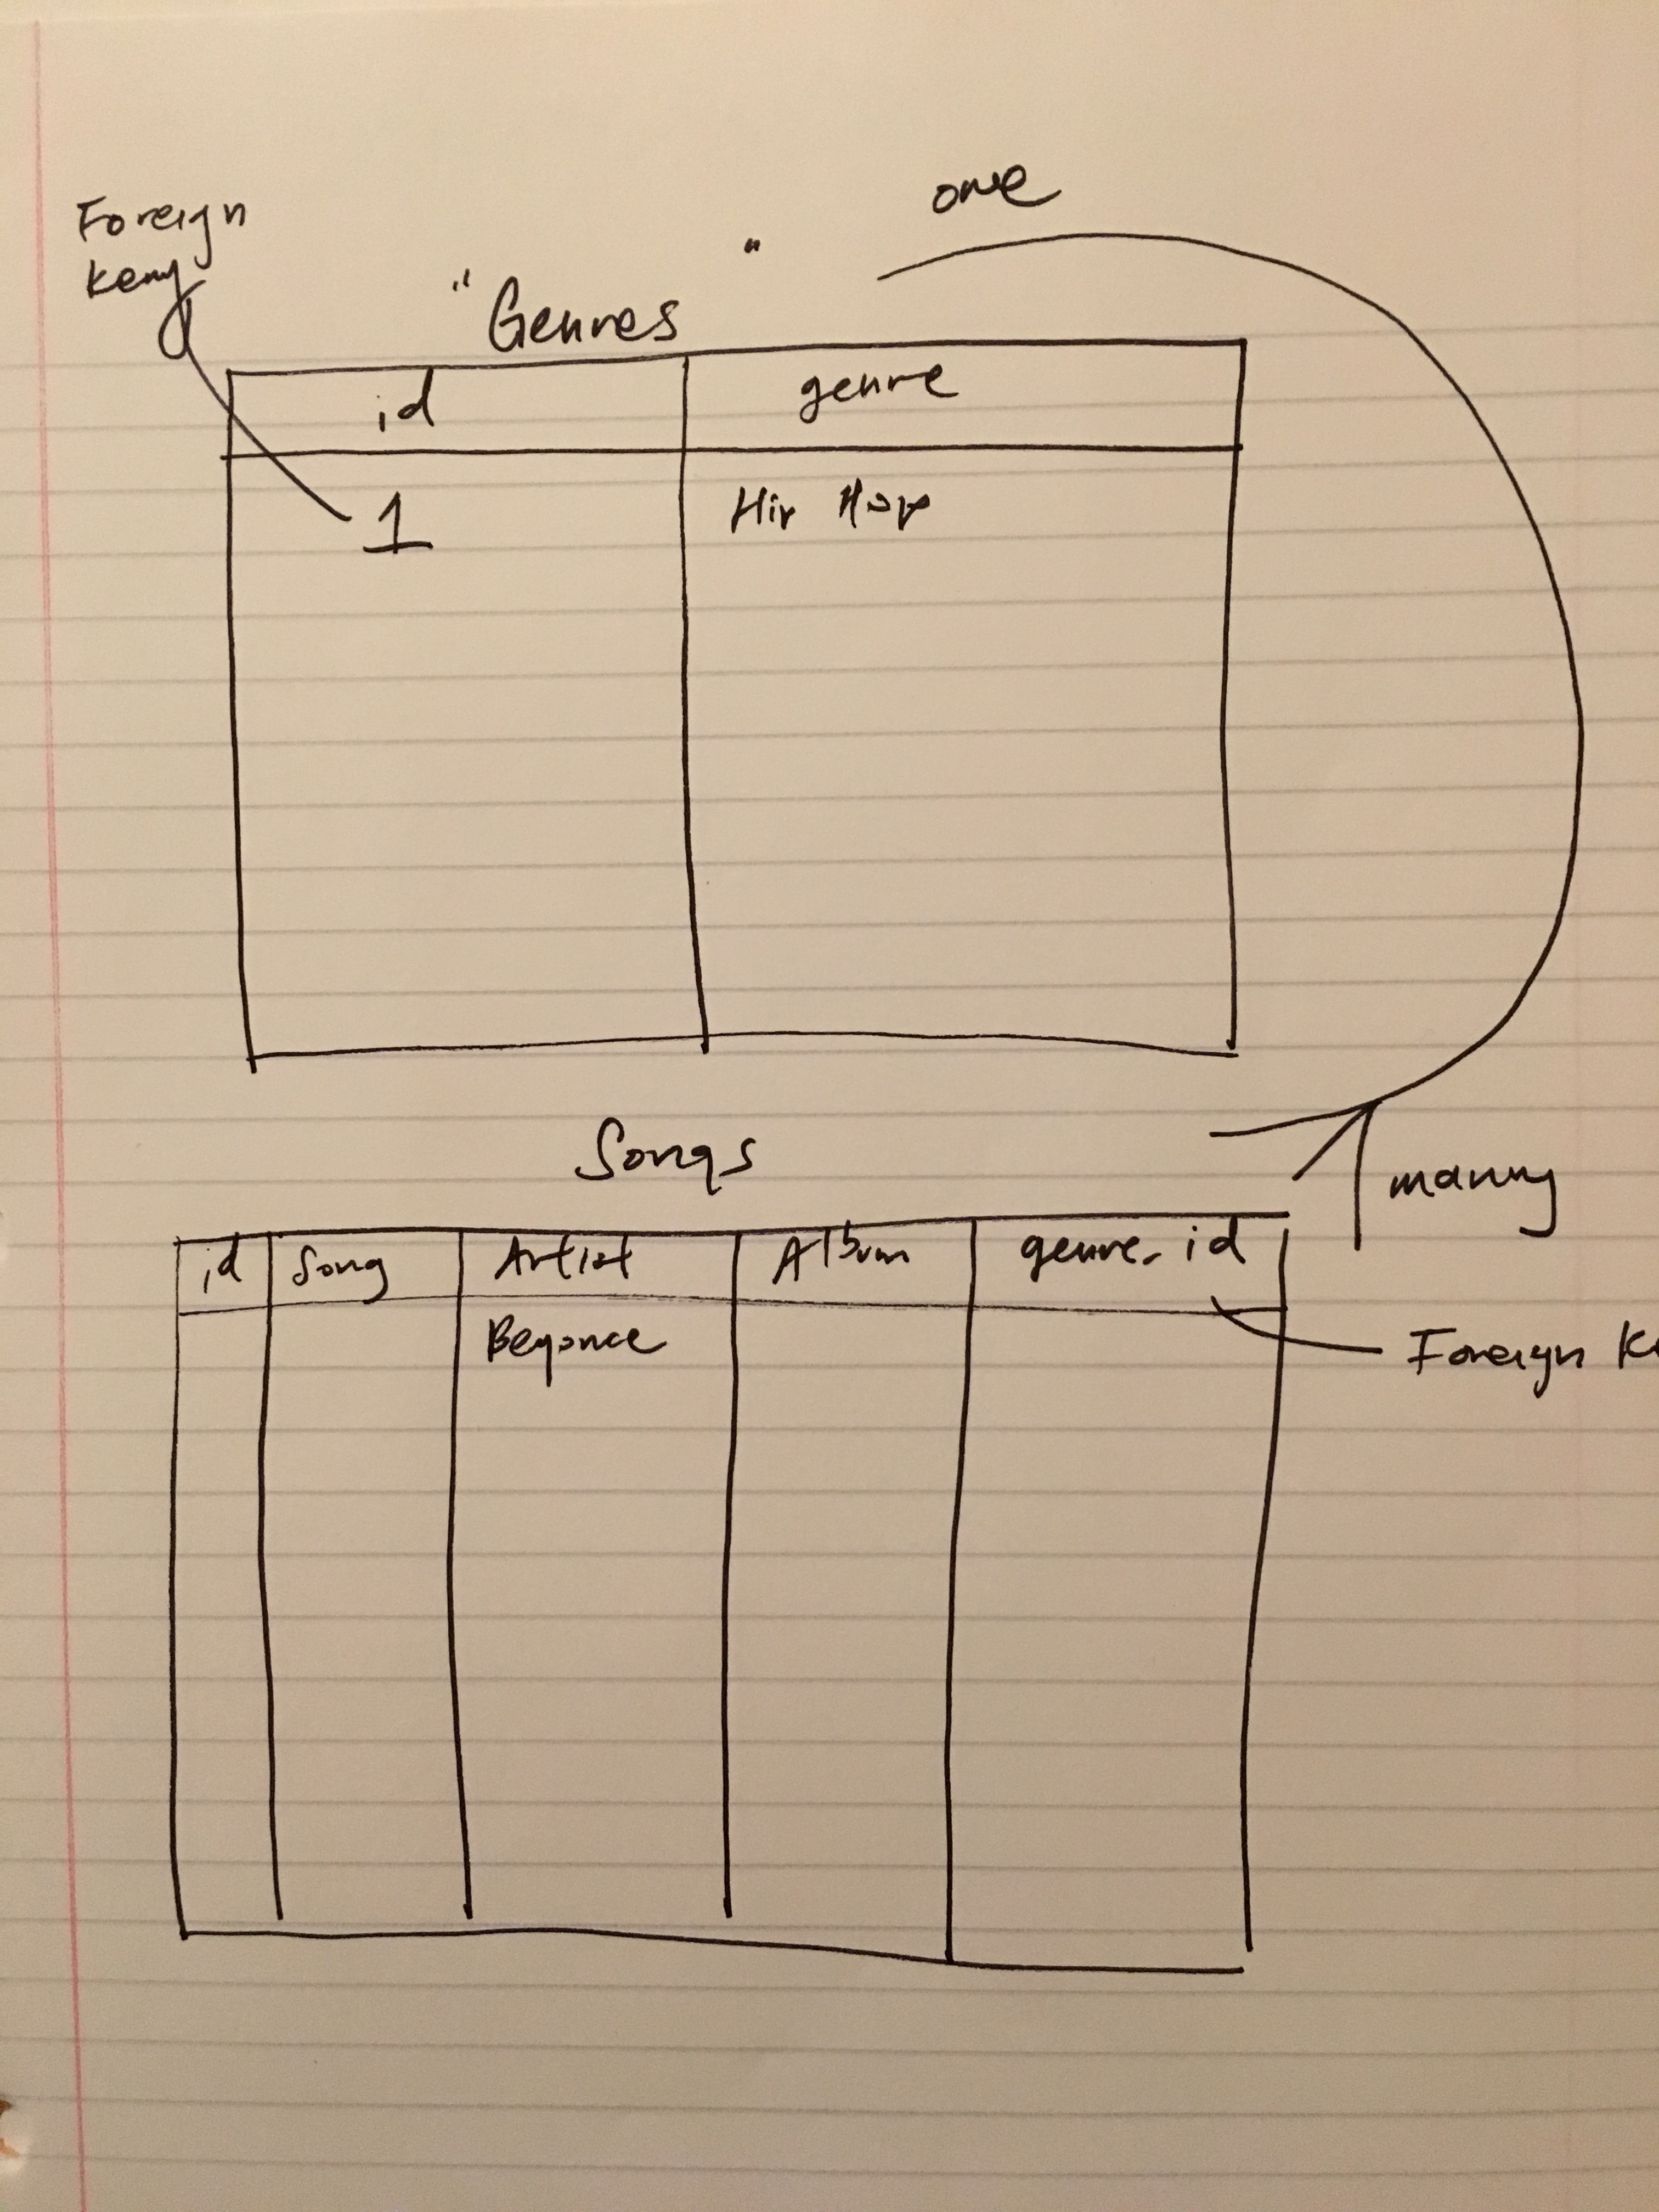 one
Foreign
Key
"Genres"
id genre
1 Hip Hop
Songs
many
id Song Artist Album genre_id
Beyonce
Foreign Ke